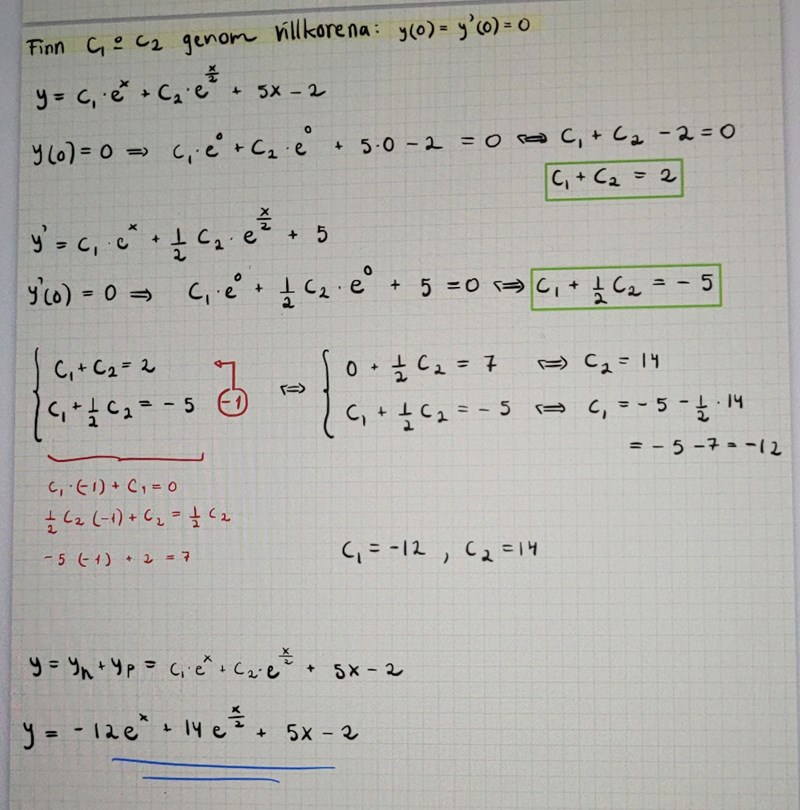 Finn C₁ o C₂ genom villkorena: y(0) = y'(0) = 0
y = C₁·e^x + C₂·e^(x/2) + 5x - 2
y(0) = 0 ⇒ C₁·e^0 + C₂·e^0 + 5·0 - 2 = 0 ⇔ C₁ + C₂ - 2 = 0
C₁ + C₂ = 2
y' = C₁·e^x + 1/2 C₂·e^(x/2) + 5
y'(0) = 0 ⇒ C₁·e^0 + 1/2 C₂·e^0 + 5 = 0 ⇔ C₁ + 1/2 C₂ = - 5
{ C₁ + C₂ = 2
C₁ + 1/2 C₂ = - 5 (-1)
⇔ { 0 + 1/2 C₂ = 7 ⇔ C₂ = 14
C₁ + 1/2 C₂ = - 5 ⇔ C₁ = - 5 - 1/2·14
= - 5 - 7 = -12
C₁·(-1) + C₁ = 0
1/2 C₂ (-1) + C₂ = 1/2 C₂
-5 (-1) + 2 = 7
C₁ = -12 , C₂ = 14
y = yₕ + yₚ = C₁·e^x + C₂·e^(x/2) + 5x - 2
y = -12e^x + 14e^(x/2) + 5x - 2